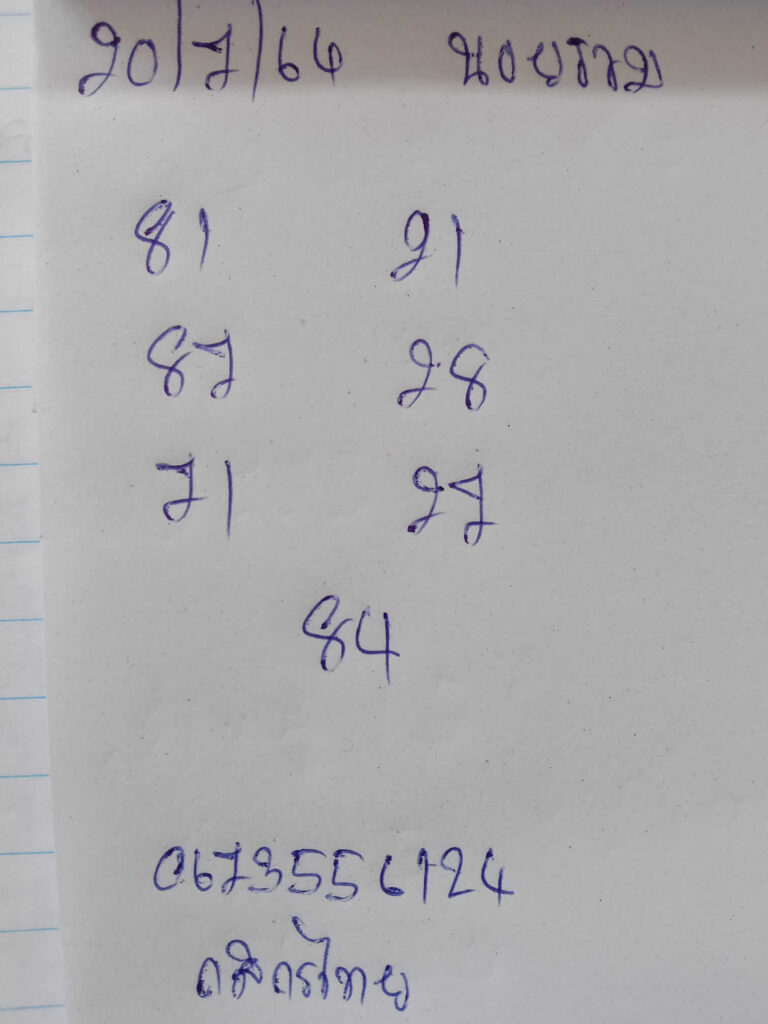 20/7/64 นอยราม
81 21
87 28
71 27
84
0673556124
กสิกรไทย